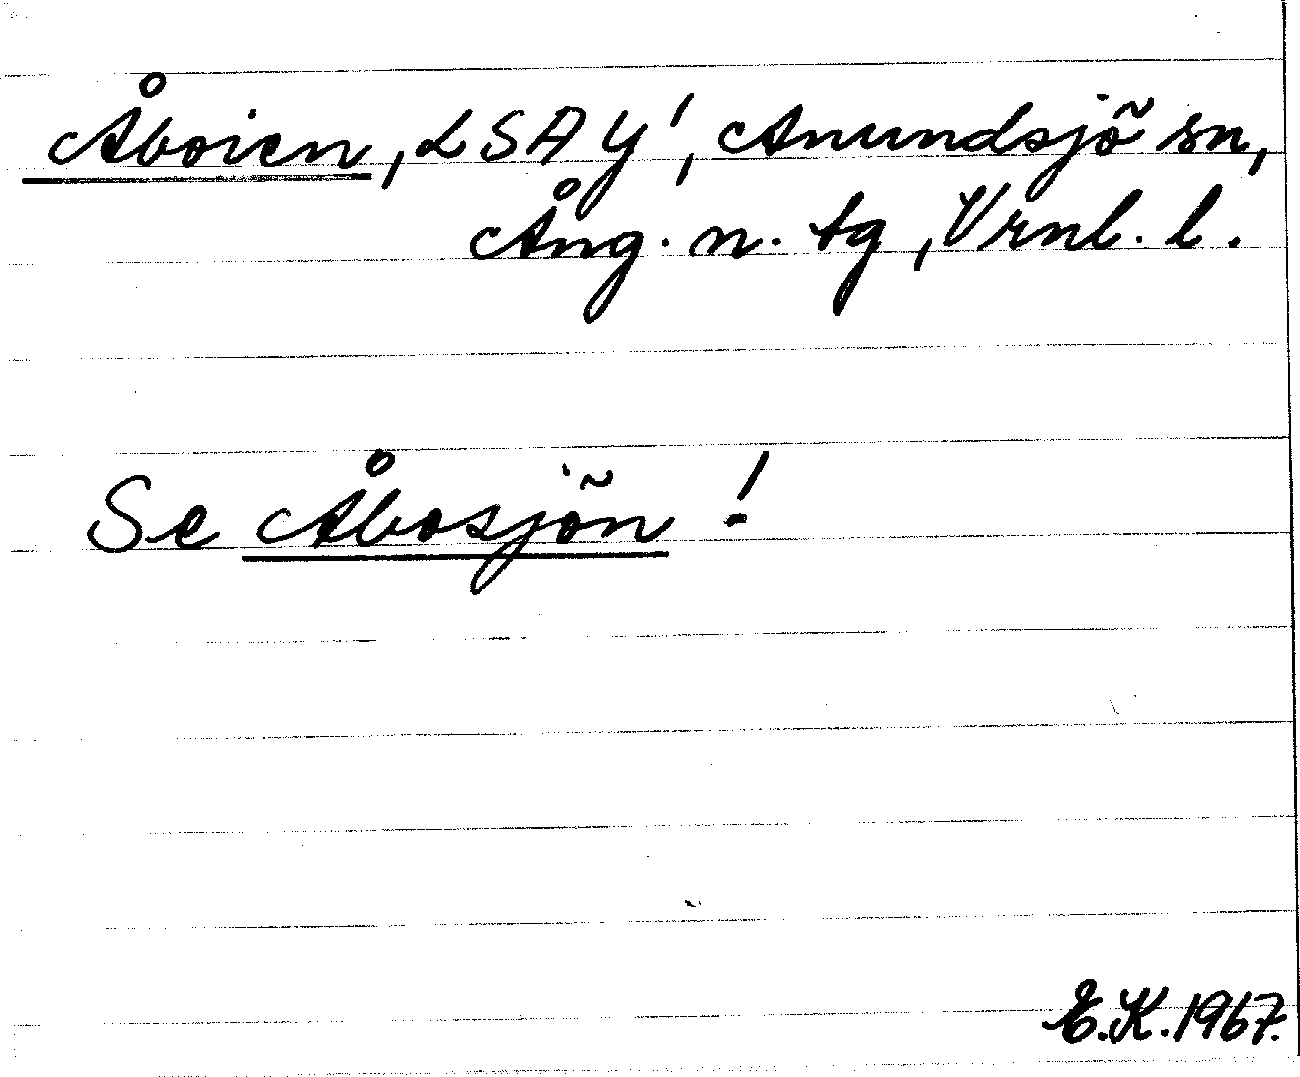 Åboien, LSA Y', Anundsjö sn,
Ång. n. tg, Vrnl. l.
Se Åbosjön!
E.K. 1967.